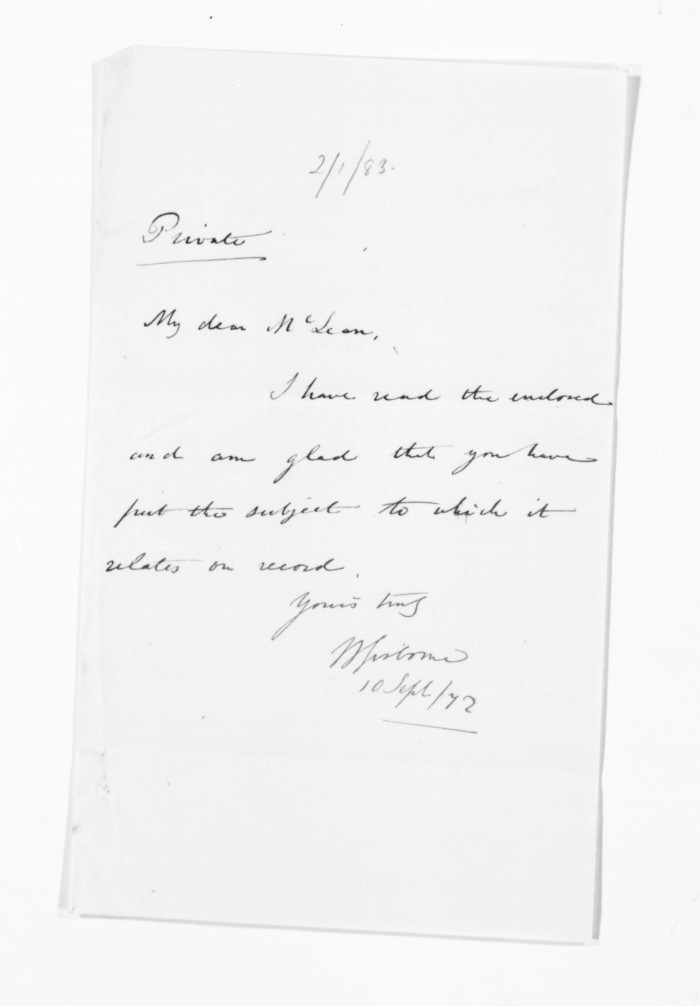 2/1/83.
Private
My dear McLean,
I have read the enclosed
and am glad that you have
put the subject to which it
relates on record.
Yours truly
W Gisborne
10 Sept/72